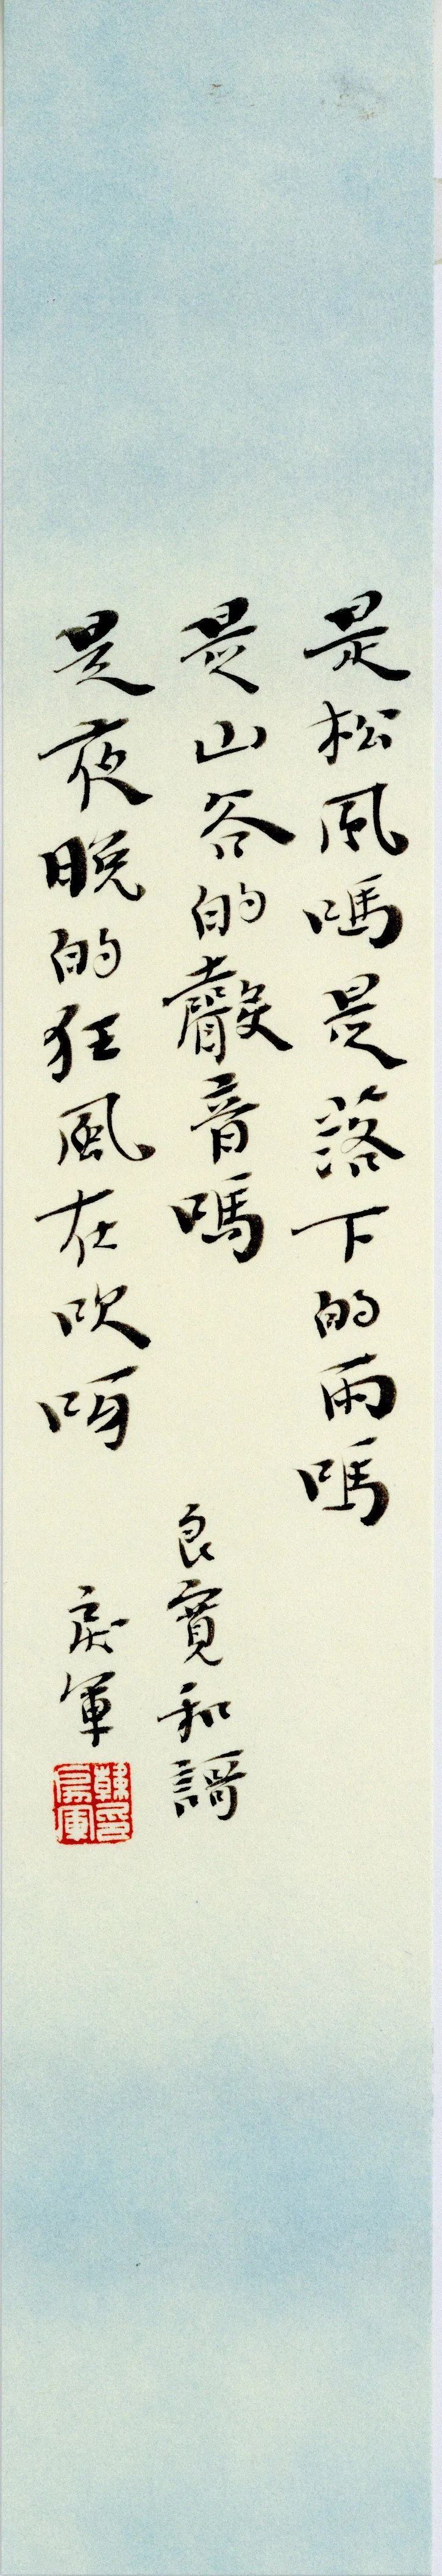 是松風嗎是落下的雨嗎
是山谷的聲音嗎
良寬和謌
是夜晚的狂風在吹呀
軍
韓印
軍